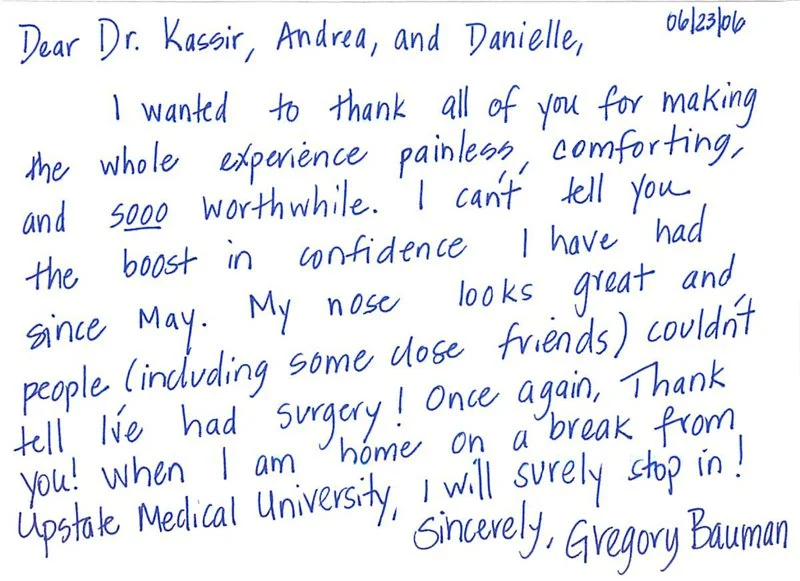 06/23/06
Dear Dr. Kassir, Andrea, and Danielle,
I wanted to thank all of you for making
the whole experience painless, comforting,
and sooo worthwhile. I can't tell you
the boost in confidence I have had
since May. My nose looks great and
people (including some close friends) couldn't
tell I've had surgery! Once again, Thank
you! When I am home on a break from
Upstate Medical University, I will surely stop in!
Sincerely, Gregory Bauman